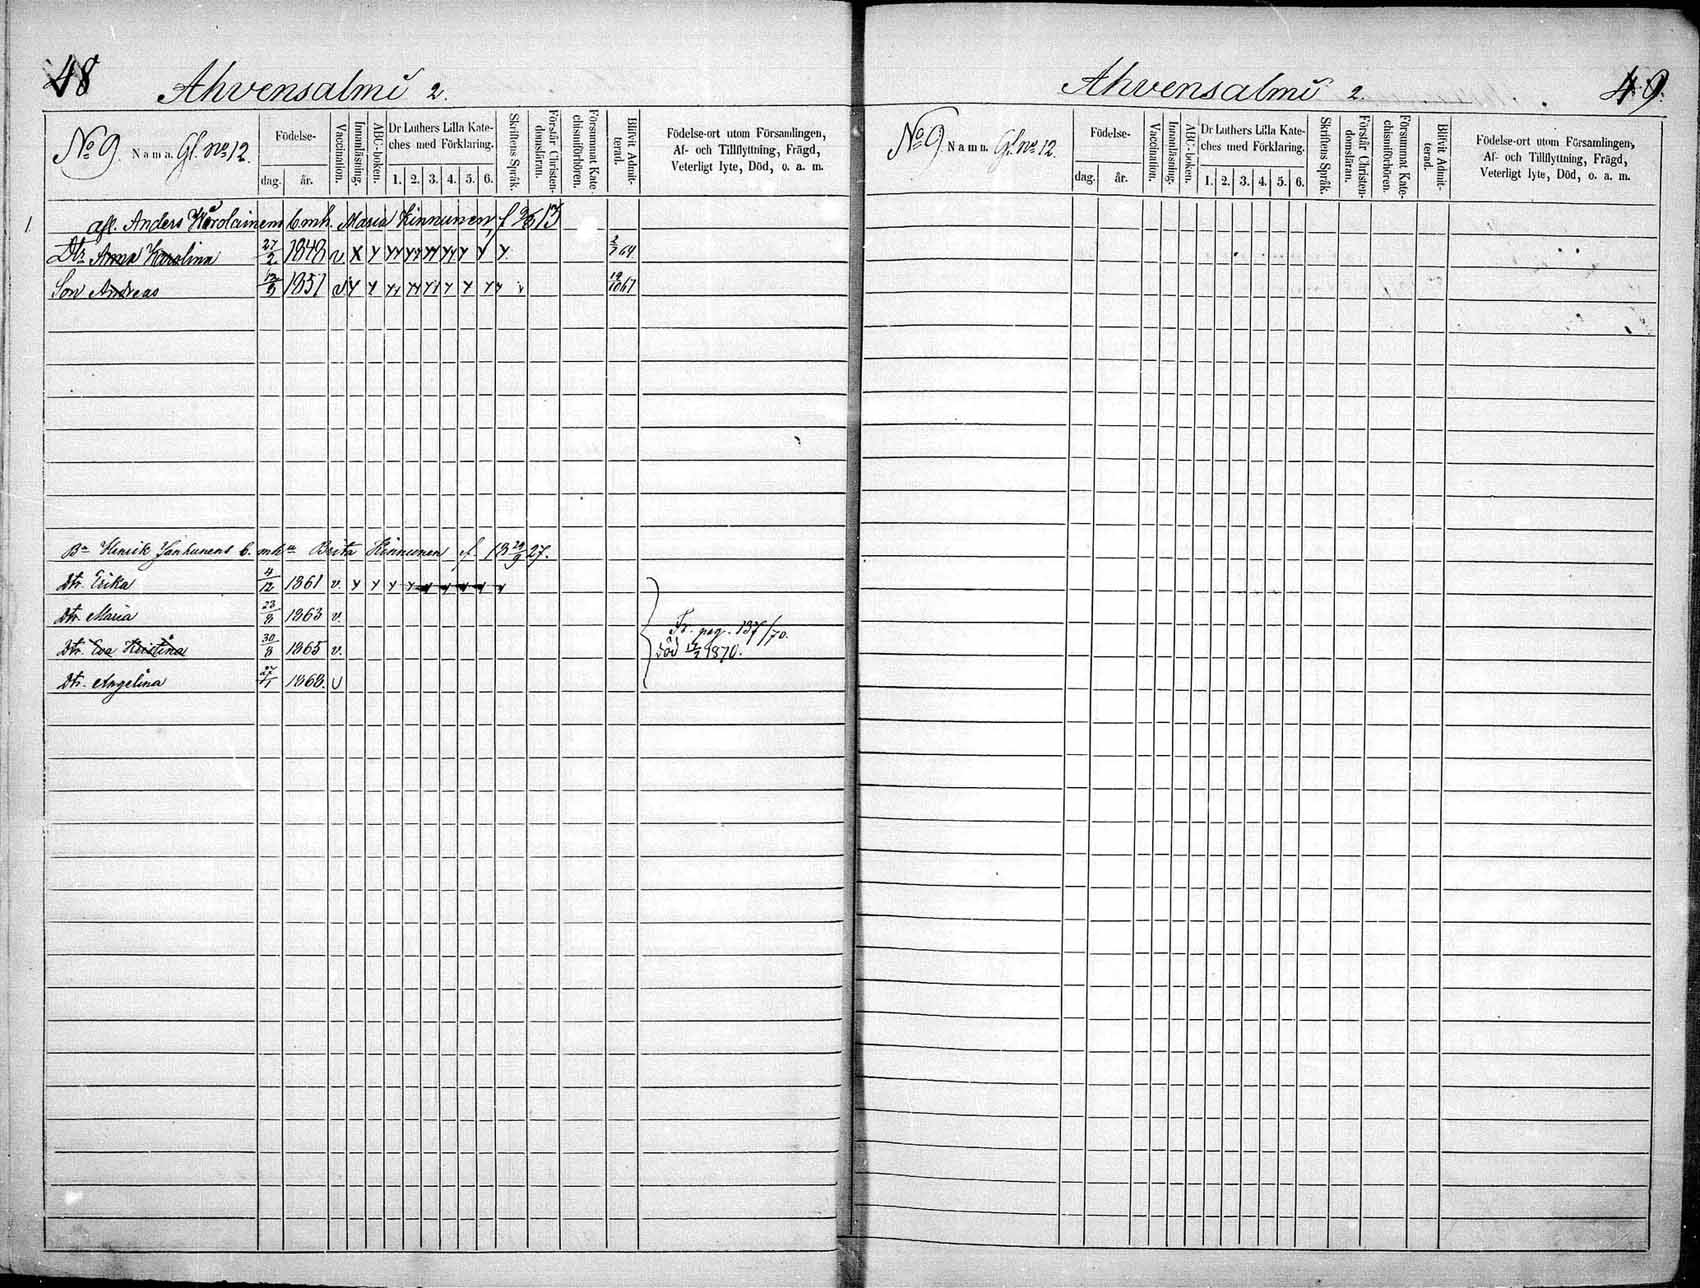 48 Ahvensalmi 2.
No 9. Namn. Gl. No 12.
Födelse-
dag. år.
Vaccination.
Innanläsning.
ABC-boken.
Dr Luthers Lilla Kate-
ches med Förklaring.
1. 2. 3. 4. 5. 6.
Skriftens Språk.
Förstår Christen-
domsläran.
Försummat Kate-
chismiförhören.
Blifvit Admit-
terad.
Födelse-ort utom Församlingen,
Af- och Tillflyttning, Frägd,
Veterligt lyte, Död, o. a. m.
1 afl. Anders Karolainens b. mh. Maria Kinnunen, f.
Dtr. Anna Karolina 27/2 1848 v
Son Andreas 1851 v
Bn Henrik Janhunens b. mha Brita Kinnunen f. 18 29/9 27.
Dtr. Erika 4/12 1861 v.
Dtr. Maria 23/8 1863 v.
Dtr. Eva Kristina 30/8 1865 v.
Fr. pag. 137/70.
död 1870.
Dtr. Angelina 27/1 1868. v
Ahvensalmi 2. 49
No 9 Namn. Gl. No 12.
Födelse-
dag. år.
Vaccination.
Innanläsning.
ABC-boken.
Dr Luthers Lilla Kate-
ches med Förklaring.
1. 2. 3. 4. 5. 6.
Skriftens Språk.
Förstår Christen-
domsläran.
Försummat Kate-
chismiförhören.
Blifvit Admit-
terad.
Födelse-ort utom Församlingen,
Af- och Tillflyttning, Frägd,
Veterligt lyte, Död, o. a. m.